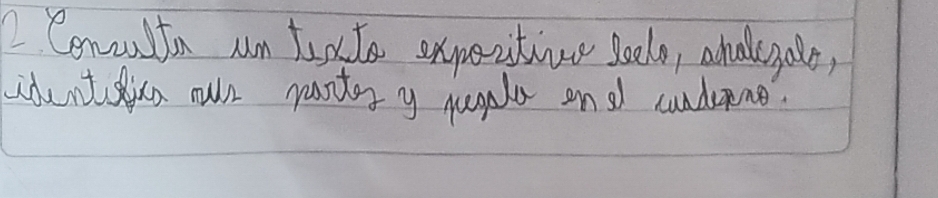 2. Consulta un texto expositivo leelo, analizalo,
identifica sus partes y pegalo en el cuaderno.